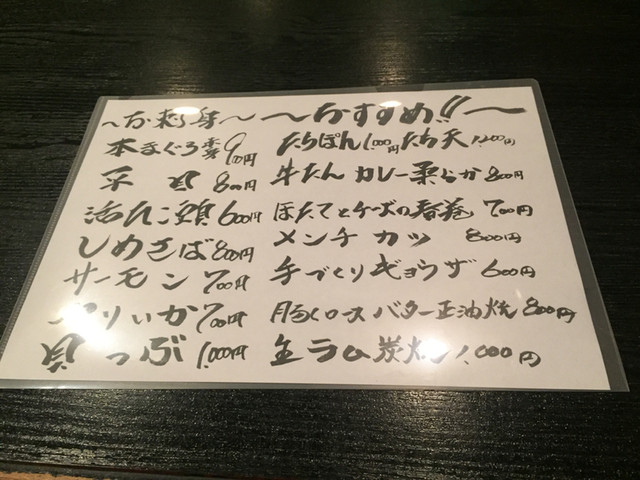 〜お刺身〜
本まぐろ 900円
平貝 800円
活たこ頭 600円
しめさば 800円
サーモン 700円
やりいか 700円
真つぶ 1,000円
〜おすすめ!!〜
たちぽん 1,000円 たち天 1,200円
牛たんカレー柔らか 800円
ほたてとチーズの春巻 700円
メンチカツ 800円
手づくりギョウザ 600円
豚ロースバター正油焼 800円
生ラム炭焼 1,000円